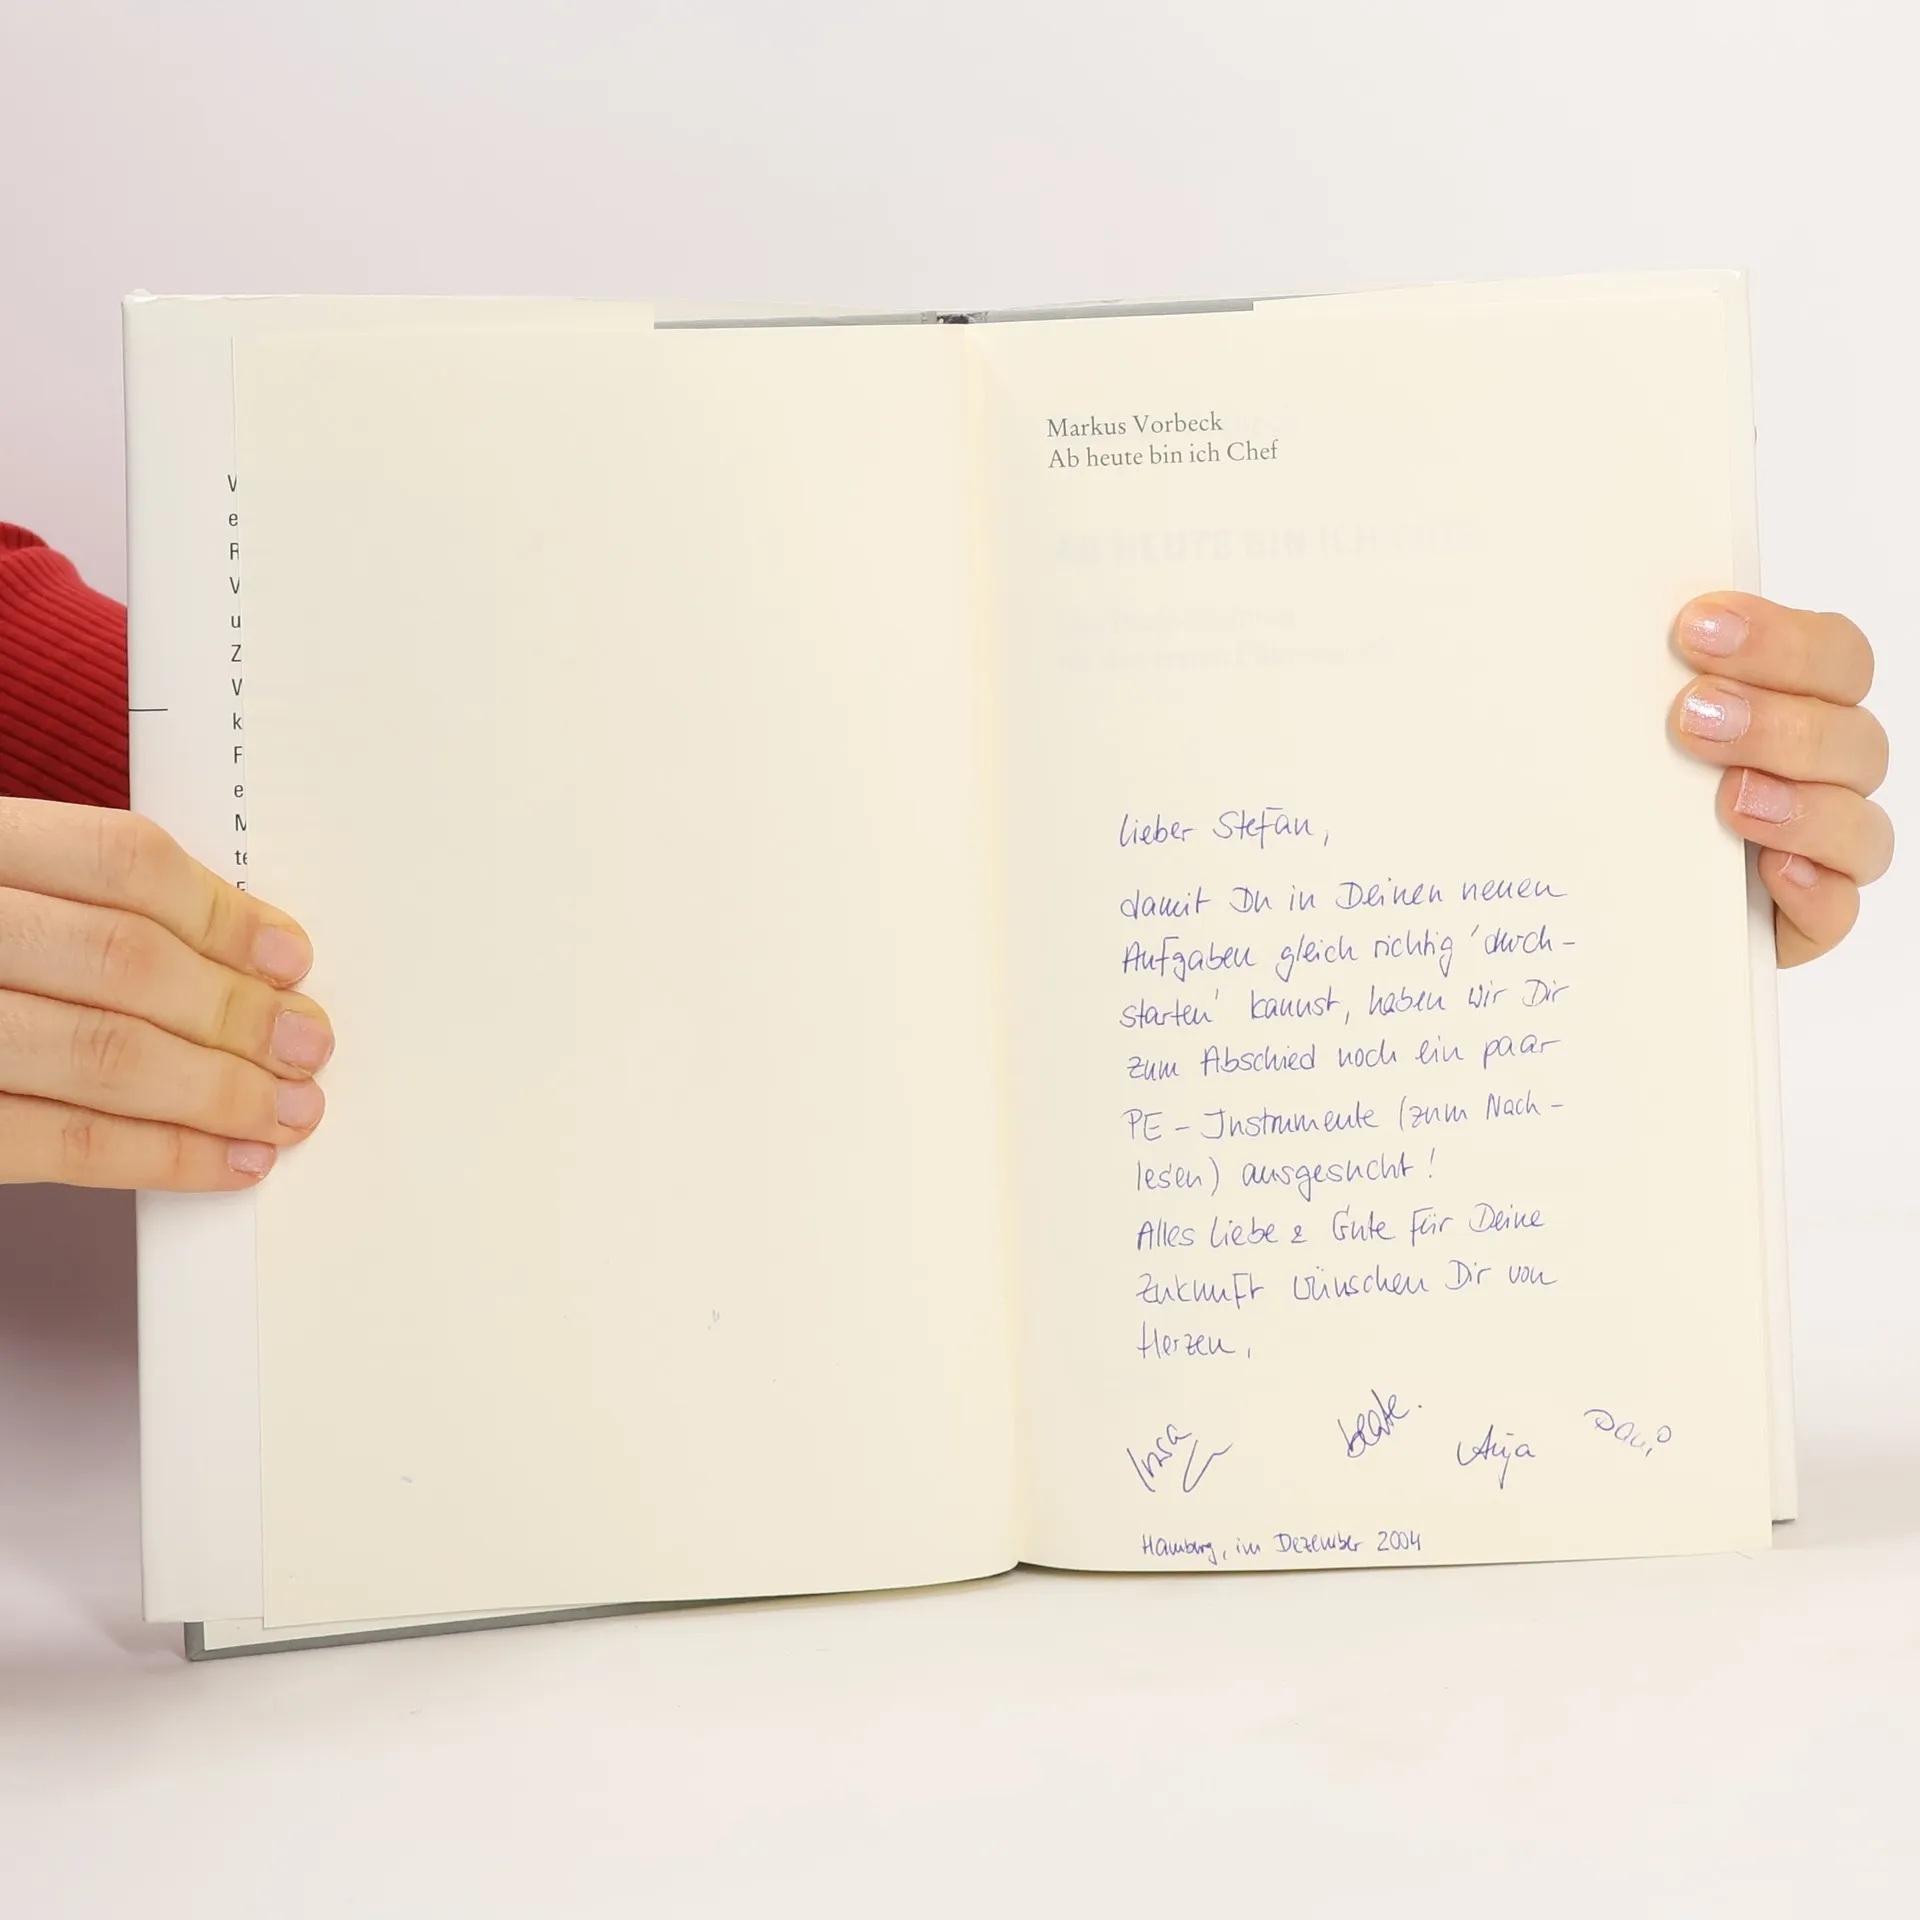 V
e
R
V
u
Z
V
k
F
e
M
te
F
Markus Vorbeck
Ab heute bin ich Chef
AB HEUTE BIN ICH
Lieber Stefan,
damit Du in Deinen neuen
Aufgaben gleich richtig 'durch-
starten' kannst, haben wir Dir
zum Abschied noch ein paar
PE - Instrumente (zum Nach-
lesen) ausgesucht!
Alles Liebe & Gute für Deine
Zukunft wünschen Dir von
Herzen,
Insa beate. Anja
Hamburg, im Dezember 2004